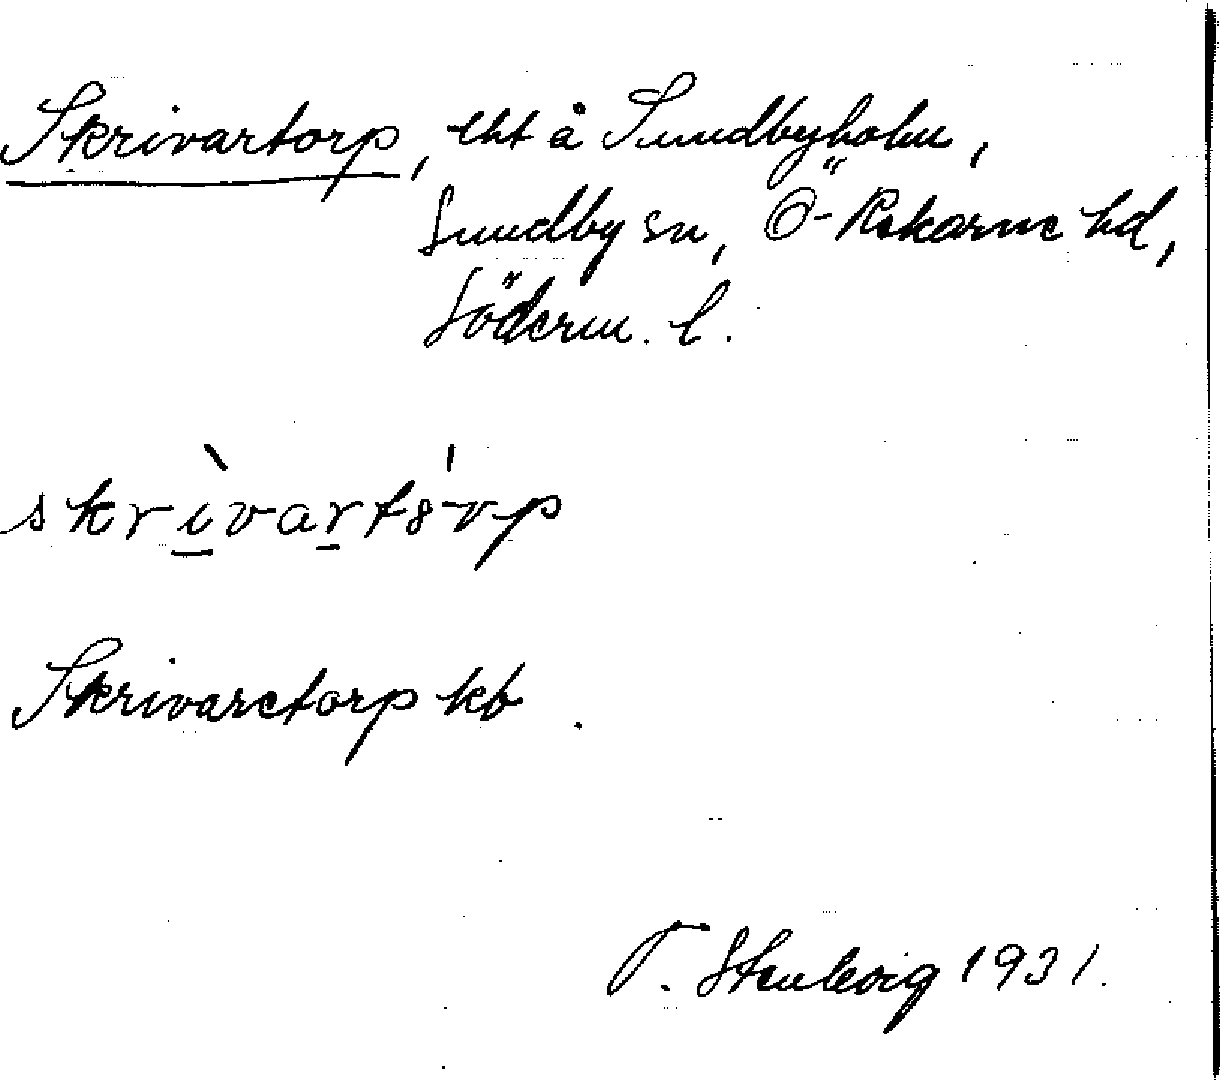 Skrivartorp, lht å Sundbyholm,
Sundby sn, Ö-Rekarne hd,
Söderm. l.
skrìvartór̀p
Skrivaretorp kb
1931.